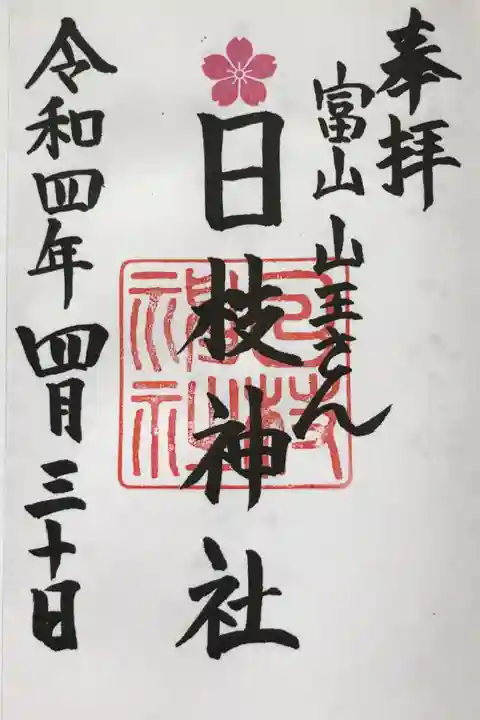 奉拝
富山山王さん
日枝神社
令和四年四月三十日